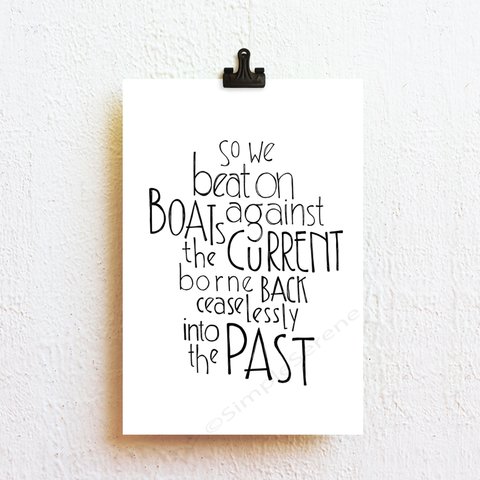 so we
beat on
BOATs against
the CURRENT
borne BACK
ceaselessly
into
the PAST
©SimplySerene